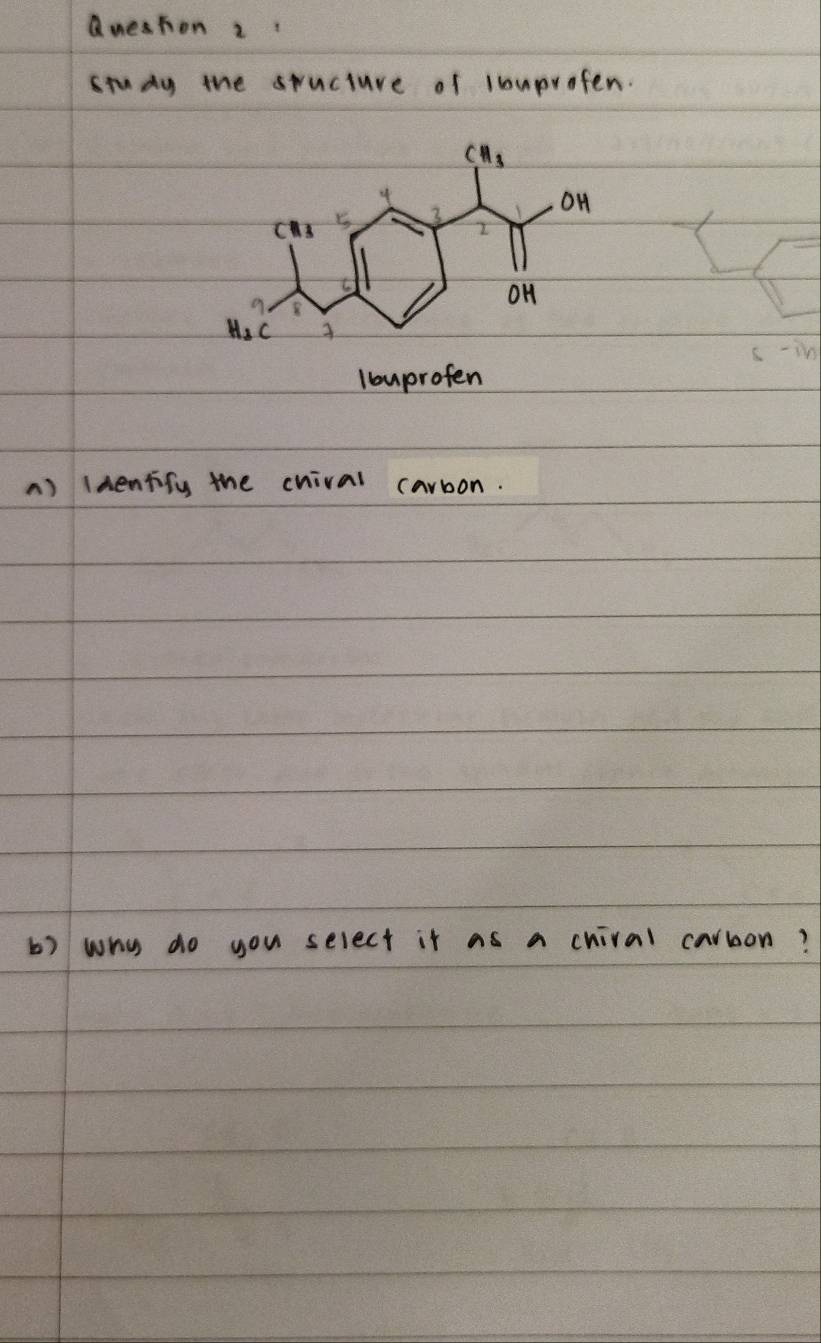 Question 2 :
Study the structure of Ibuprofen.
CH3
OH
4
3
1
5
2
CH3
OH
6
9
8
7
H3C
s - ib
Ibuprofen
a) Identify the chiral carbon.
b) Why do you select it as a chiral carbon?